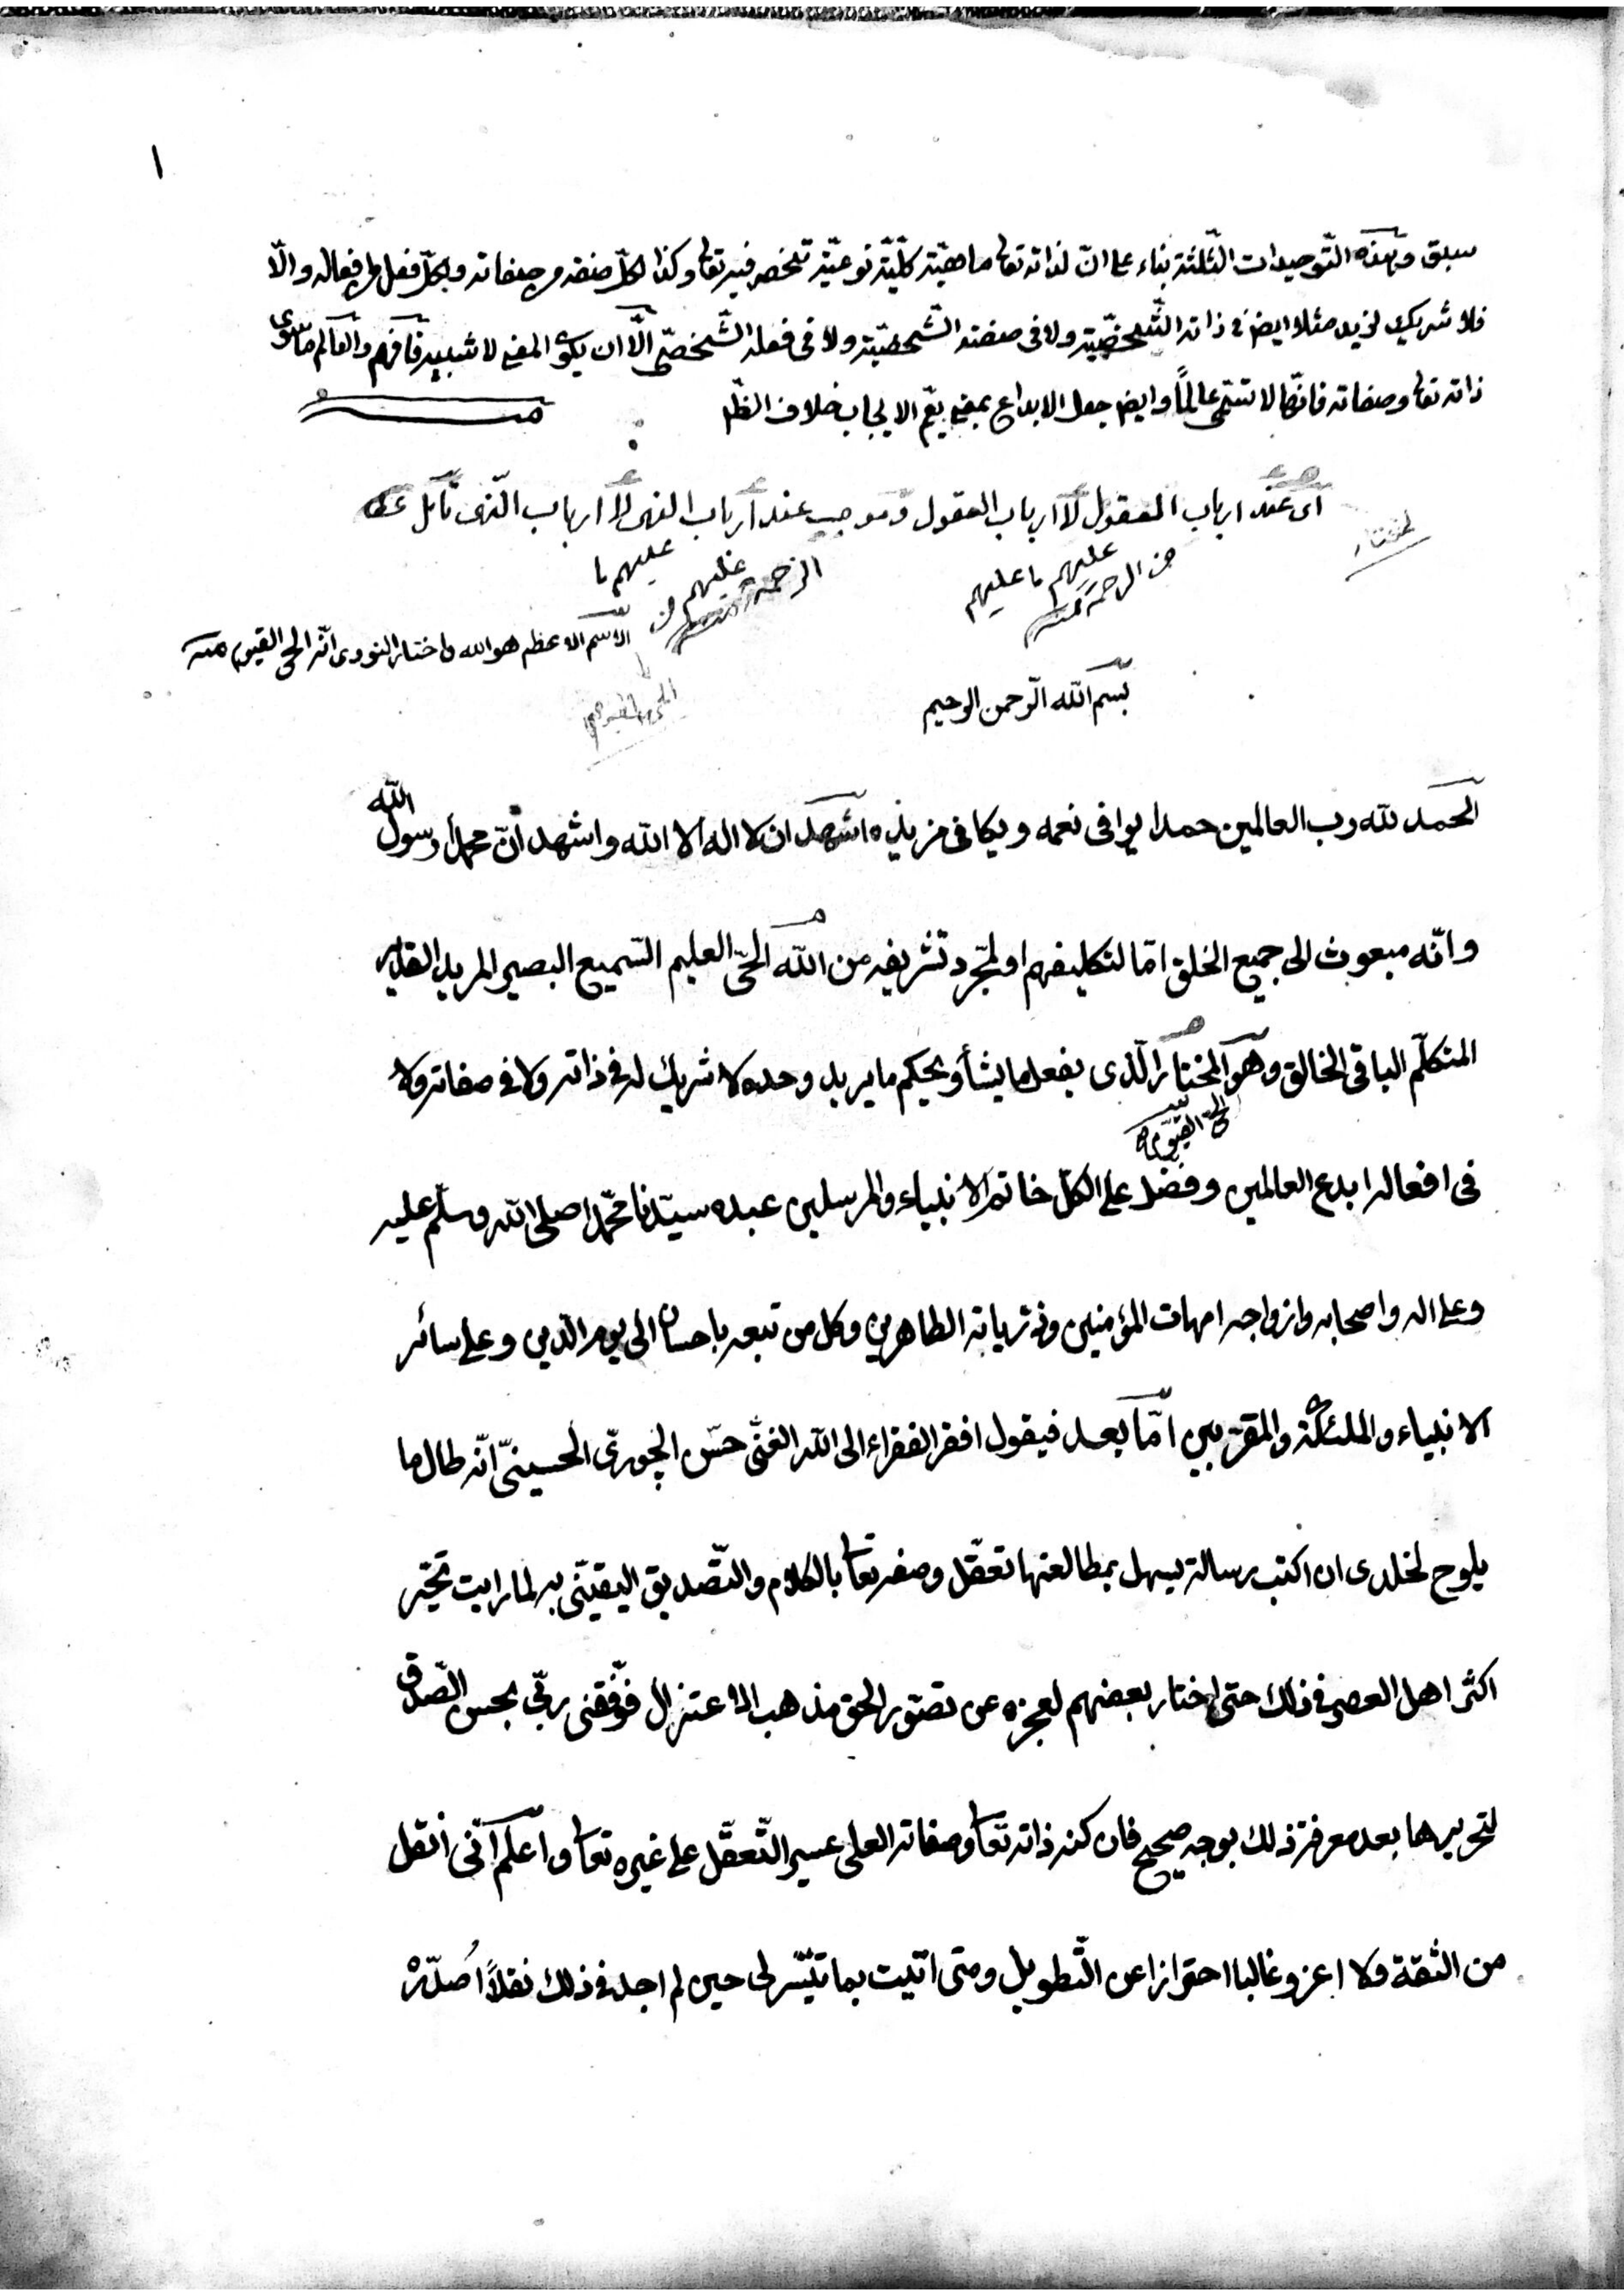 ١
سبق وهذه التّوحيدات الثّلثة بناء على انّ لذاته تعا ماهيّة كلّيّة نوعيّة تنحصر فيه تعا وكذا لكلّ صفة من صفاته ولكلّ فعل من افعاله والّا
فلا شريك لزيد مثلا ايضا في ذاته الشّخصيّة ولا فى صفته الشّخصيّة ولا فى فعله الشّخصّى الّا ان يكون المعنى لا شبيه فافهم والعالم ما سوى
ذاته تعا وصفاته فانّها لا تسمّى عالمًا وايضا جعل الابداع بمعنى يعّم الايجاب خلاف الظّ
منـه
اى عند ارباب المعقول لا ارباب العقول وموجب عند ارباب النهى لا ارباب الّذى
عليهم ما عليهم
من الرحمة منه
عليهم ما
عليهم من
الرحمة منه
الاسم الاعظم هو الله واختار النووى انّه الحى القيوم منه
الحى القيوم
بسم الله الّرحمن الرحيم
الحمد لله رب العالمين حمدا يوافى نعمه ويكافى مزيده اشهد ان لا اله الا الله واشهد انّ محمداً رسول الله
وانّه مبعوث الى جميع الخلق امّا لتكليفهم او لمجّرد تشريفه من الله الحىّ العليم السّميع البصير المريد القدير
المتكلّم الباقى الخالق وهو المختار الّذى يفعل ما يشأ ويحكم ما يريد وحده لا شريك له في ذاته ولا فى صفاته ولا
الحىّ القيّوم
فى افعاله ابدع العالمين وفضّل على الكلّ خاتم الانبياء والمرسلين عبده سيّدنا محّمدا صلى الله وسلّم عليه
وعلى اله واصحابه وازواجه امهات المؤمنين وذرّياته الطاهرين وكل من تبعه باحسان الى يوم الدّين وعلى سائر
الانبياء والملئكة والمقرّبين امّا بعد فيقول افقر الفقراء الى الله الغنّى حسن الچورىّ الحسينىّ انّه طال ما
يلوح لخلدى ان اكتب رسالة يسهل بمطالعتها تعقّل وصفه تعا بالكلام والتّصديق اليقينّى به لما رايت تحيّر
اكثر اهل العصر في ذلك حتى اختار بعضهم لعجزه عن تصّور الحق مذهب الاعتزال فوّفقنى ربّى بحسن الصّدق
لتحريرها بعد معرفة ذلك بوجه صحيح فان كنه ذاته تعا وصفاته العلى عسير التّعقّل على غيره تعا واعلم انّى انقل
من الثقة ولا اعزو غالبا احترازا عن التّطويل ومتى اتيت بما تيّسر لى حين لم اجد فى ذلك نقلاً اُصدّرْ